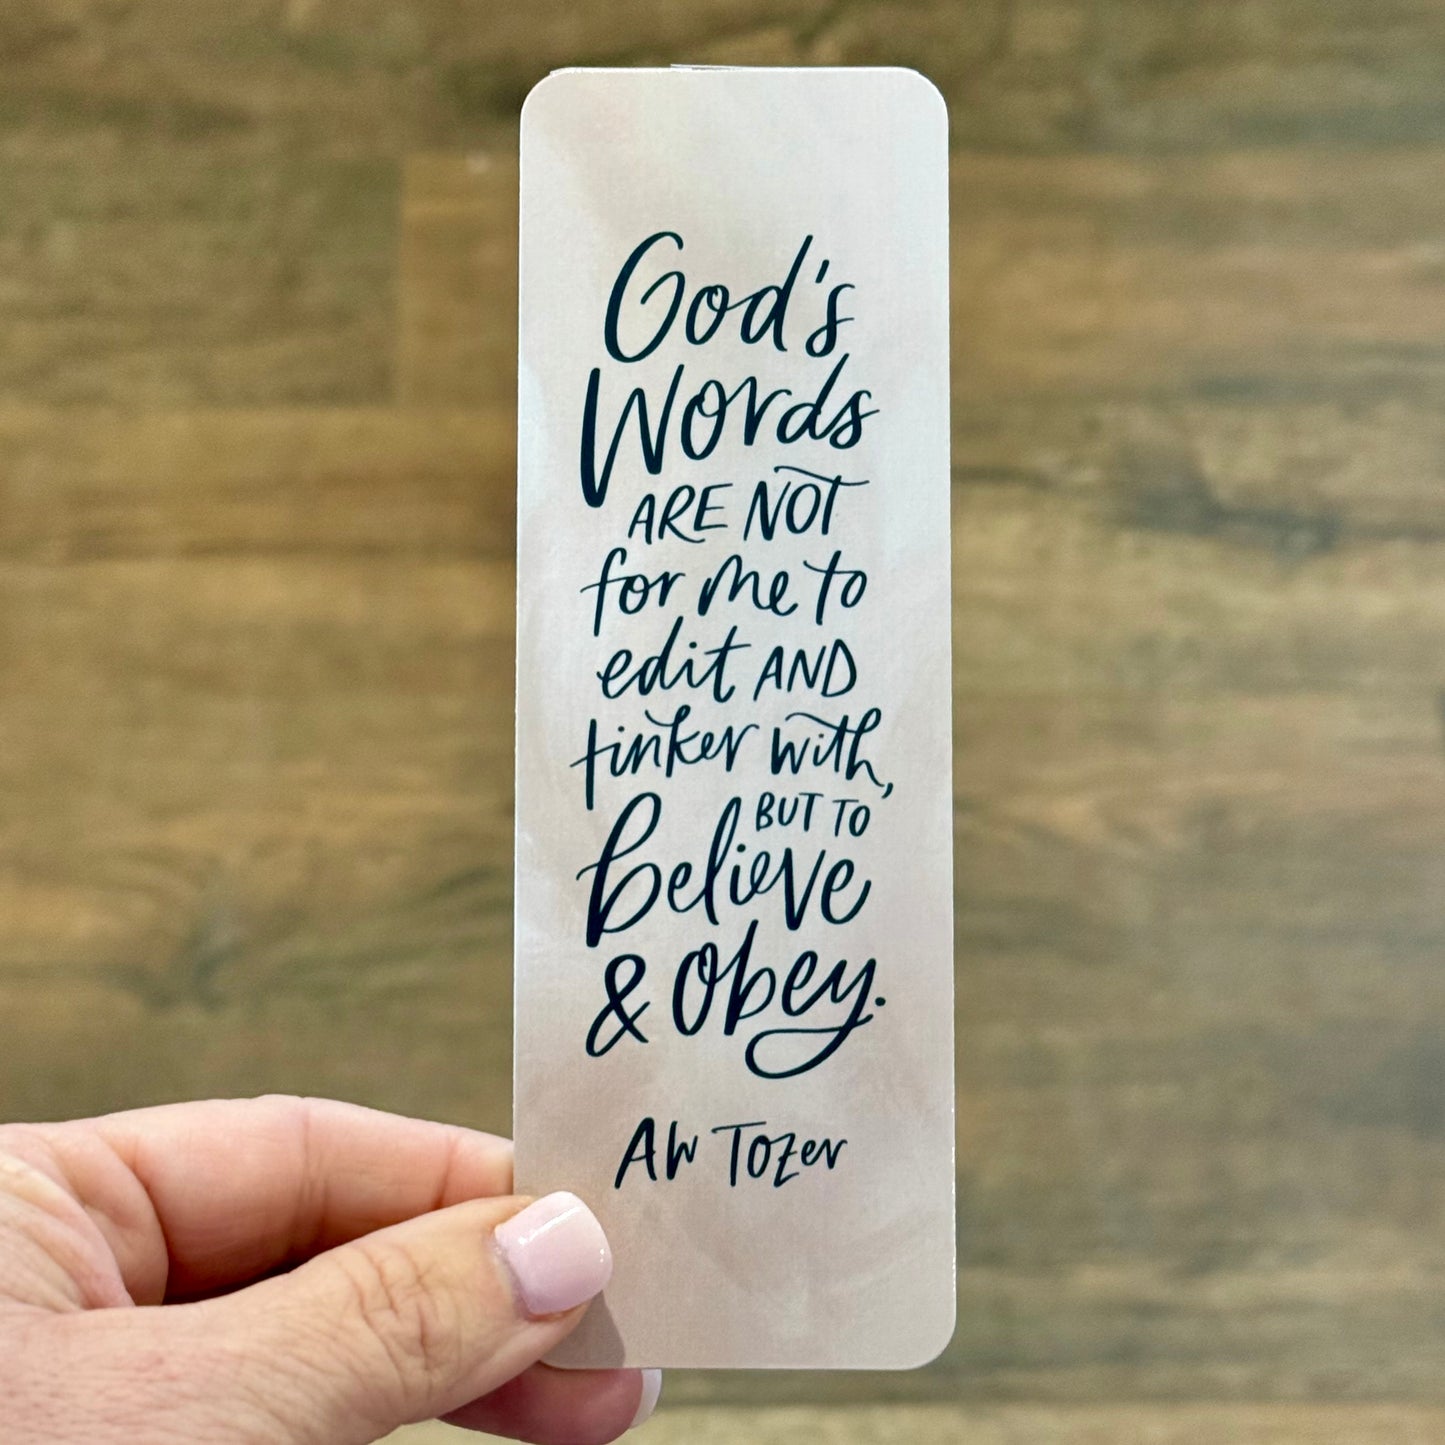 God's
Words
ARE NOT
for me to
edit AND
tinker with,
BUT TO
believe
& obey.
AW Tozer